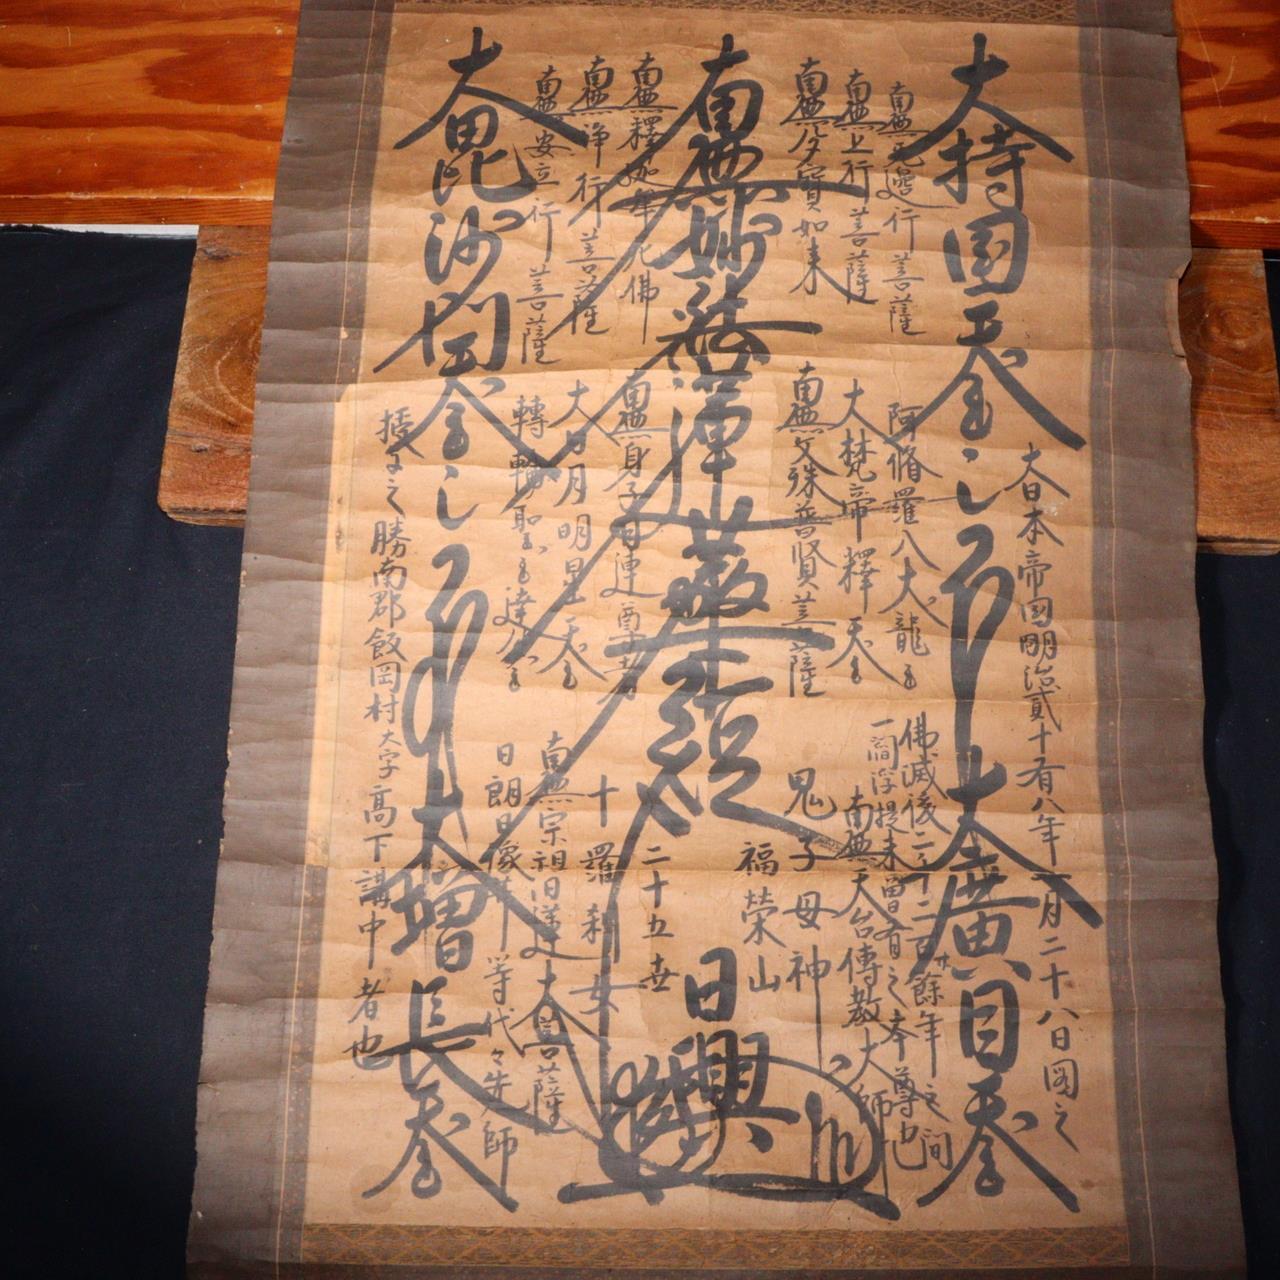 大日本帝國明治貳十有八年一月二十八日圖之
大持国天王
大廣目天王
南無无邊行菩薩
南無上行菩薩
南無多寳如来
阿脩羅八大龍王
大梵帝釋天王
南無文殊普賢菩薩
佛滅後二千二百廿餘年之間
一閻浮提未曽有之本尊也
南無天台傳教大師
鬼子母神
福榮山
南無妙法蓮華経
日興
二十五世
南無釋迦牟尼佛
南無浄行菩薩
南無安立行菩薩
南無身子目連尊者
大日月明星天王
轉輪聖王達多
十羅刹女
南無宗祖日蓮大菩薩
日朗日像等代々先師
大毘沙門天王
大増長天王
授与之勝南郡飯岡村大字高下講中者也